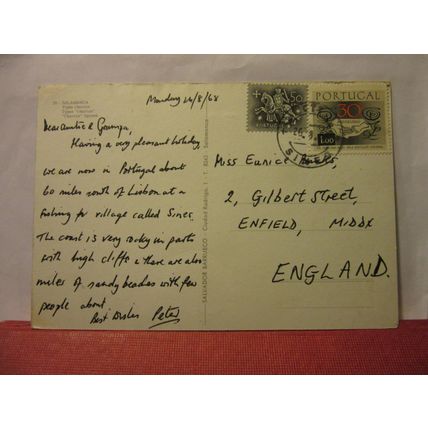 20 - SALAMANCA
Monday 26/8/68
Dear Auntie & Grampa,
Having a very pleasant holiday,
we are now in Portugal about
60 miles south of Lisbon at a
fishing village called Sines.
The coast is very rocky in parts
with high cliffs & there are also
miles of sandy beaches with few
people about.
Best Wishes Peter
SALVADOR BARRUECO Ciudad Rodrigo, 1 - T. 8243 Salamanca
$50
PORTUGAL
30
1.00
SINES
Miss Eunice
2, Gilbert Street,
ENFIELD, MIDDX
ENGLAND.